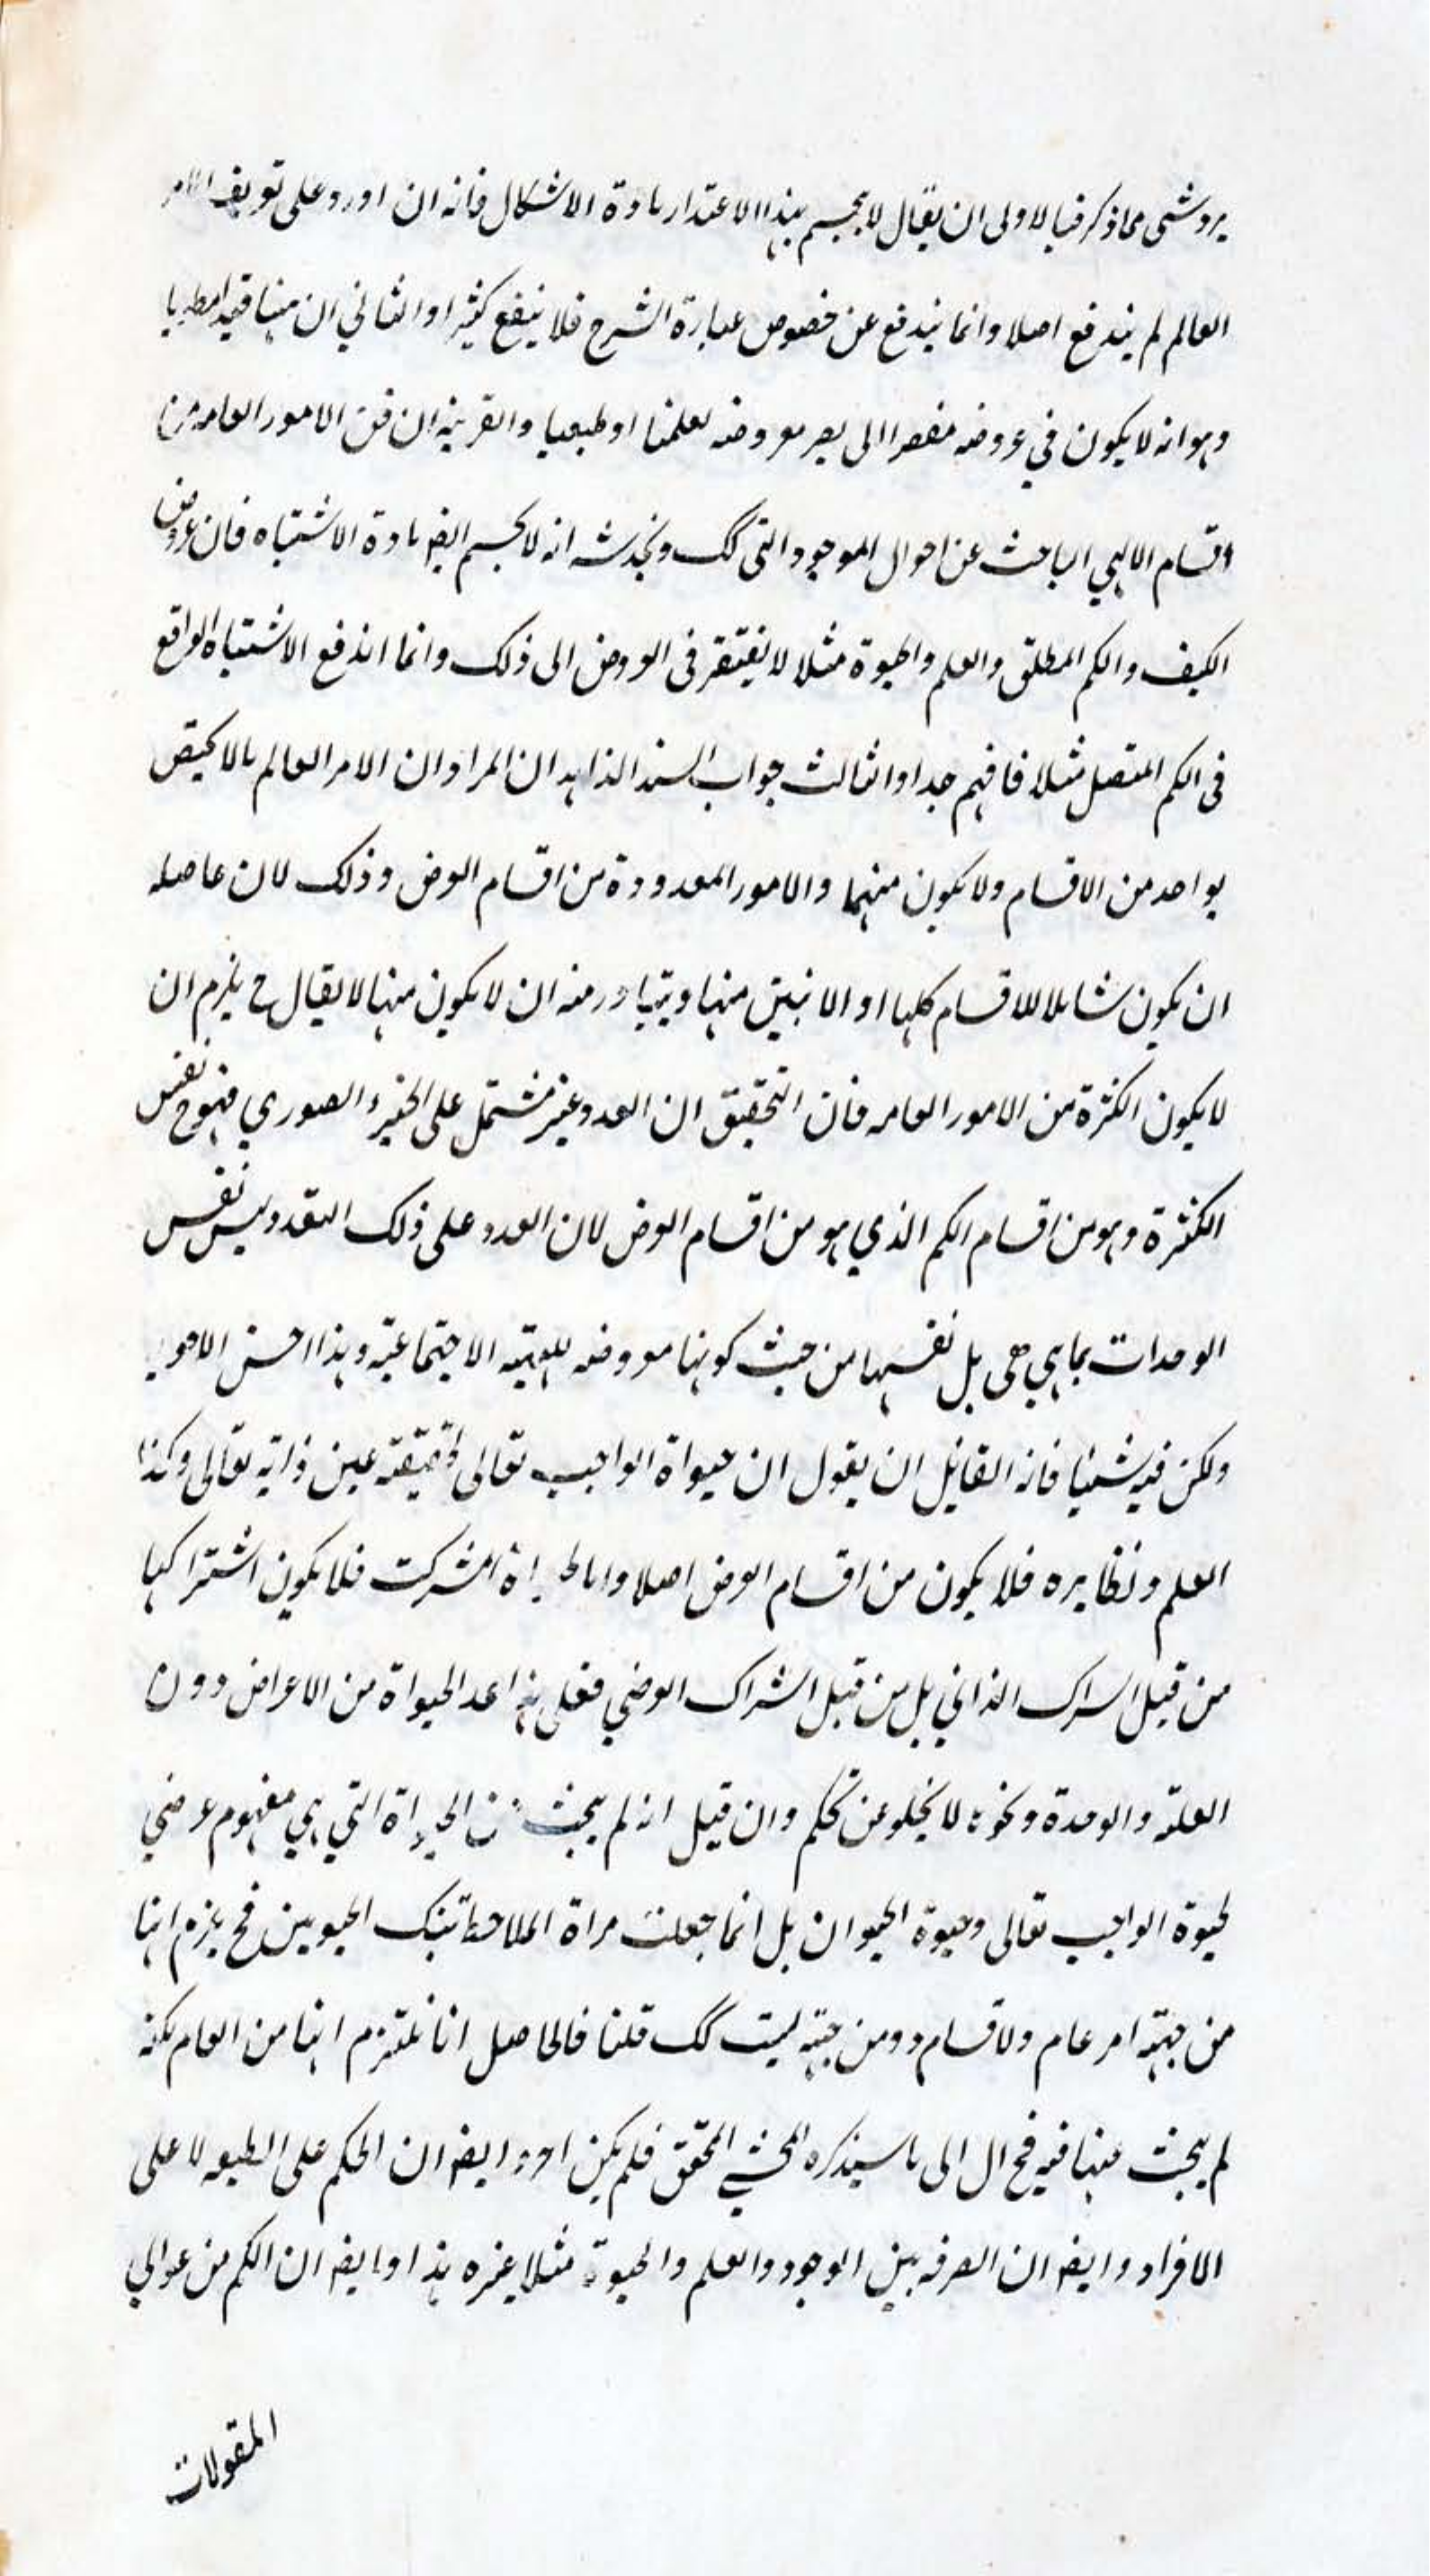 يرد شئ مما ذكر فيالاولى ان يقال لا يحسم بهذا الاعتذار مادة الاشكال فانه ان اورد على تعريف الامر
العالم لم يندفع اصلا وانما يندفع عن خصوص عبارة الشرح فلا ينفع كثيرا والثاني ان ههنا قيدا مطويا
وهو انه لا يكون في عروضه مفتقرا الى يصر معروضه تعلمنا او طبيعيا والقرينة ان فن الامور العامه من
اقسام الالهي الباحث عن احوال الموجود التى كك ويخدشه انه لا يحسم ايضه مادة الاشتباه فان عروض
الكيف والكم المطلق والعلم والحيوة مثلا لا يفتقر فى العروض الى ذلك وانما اندفع الاشتباه الواقع
فى الكم المتصل مثلا فافهم جدا والثالث جواب السند الزاهد ان المراد ان الامر العالم مالا يختص
بواحد من الاقسام ولا يكون منهما والامور المعدودة من اقسام العرض وذلك لان حاصله
ان يكون شاملا للاقسام كلها او الاثنين منها ويتبادر منه ان لا يكون منها لا يقال ح يلزم ان
لا يكون الكثرة من الامور العامه فان التحقيق ان العدد غير مشتمل على الجزء الصوري فهو ح نفس
الكثرة وهو من اقسام الكم الذي هو من اقسام العرض لان العدد على ذلك التقدير ليس نفس
الوحدات بما هي هى بل نفسها من حيث كونها معروضه للهيئه الاجتماعية وهذا احسن الاجوبه
ولكن فيه شئيا فانه القائل ان يقول ان حيواة الواجب تعالى حقيقته عين ذاته تعالى وكذا
العلم ونظايره فلا يكون من اقسام العرض اصلا واما المشترك فلا يكون اشتراكها
من قبيل اشراك الذاتي بل من قبيل اشراك العرضي فعلى هذا عد الحيواة من الاعراض دون
العلة والوحدة ونحوها لا يخلو عن تحكم وان قيل انه لم يبحث عن الحيواة التي هي مفهوم عرضي
لحيوة الواجب تعالى وحيوة الحيوان بل انما جعلت مراة الملاحظة تينك الحيوتين فح يلزم انها
من جهة امر عام ولاقسام ومن جهة ليست كك قلنا فالحاصل انا نلتزم انها من العام لكنه
لم يبحث عنها فيه فح ال الى ما سيذكره المحشي المحقق فلم يكن وايضه ان الحكم على الطبيعه لا على
الافراد وايضه ان الصرفه بين الوجود والعلم والحيوة مثلا غيره هذا وايضه ان الكم من عوالي
المقولات